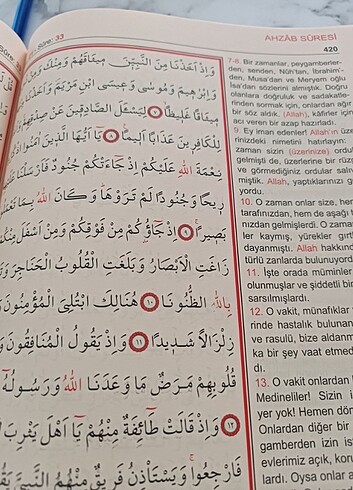 Sûre: 33
AHZÂB SÛRESİ
420
وَاِذْ اَخَذْنَا مِنَ النَّبِيّٖنَ مٖيثَاقَهُمْ وَمِنْكَ وَمِنْ
وَاِبْرٰهٖيمَ وَمُوسٰى وَعٖيسَى ابْنِ مَرْيَمَ وَاَخَذْنَا
مٖيثَاقًا غَلٖيظًا ٧ لِيَسْـَٔلَ الصَّادِقٖينَ عَنْ
لِلْكَافِرٖينَ عَذَابًا اَلٖيمًا ٨ يَٓا اَيُّهَا الَّذٖينَ اٰمَنُوا
نِعْمَةَ اللّٰهِ عَلَيْكُمْ اِذْ جَٓاءَتْكُمْ جُنُودٌ فَاَرْسَلْنَا
رٖيحًا وَجُنُودًا لَمْ تَرَوْهَا وَكَانَ اللّٰهُ بِمَا
بَصٖيرًا ٩ اِذْ جَٓاؤُ۫كُمْ مِنْ فَوْقِكُمْ وَمِنْ اَسْفَلَ مِنْكُمْ
زَاغَتِ الْاَبْصَارُ وَبَلَغَتِ الْقُلُوبُ الْحَنَاجِرَ
بِاللّٰهِ الظُّنُونَا ١٠ هُنَالِكَ ابْتُلِيَ الْمُؤْمِنُونَ
زِلْزَالًا شَدٖيدًا ١١ وَاِذْ يَقُولُ الْمُنَافِقُونَ
قُلُوبِهِمْ مَرَضٌ مَا وَعَدَنَا اللّٰهُ وَرَسُولُهُٓ
١٢ وَاِذْ قَالَتْ طَٓائِفَةٌ مِنْهُمْ يَٓا اَهْلَ يَثْرِبَ
فَارْجِعُوا وَيَسْتَأْذِنُ فَرٖيقٌ مِنْهُمُ النَّبِيَّ
7-8. Bir zamanlar, peygamberler-
den, senden, Nûh'tan, İbrahim'-
den, Musa'dan ve Meryem oğlu
İsa'dan sözlerini almıştık. Doğru
olanlara doğruluk ve sadakatle-
rinden sormak için, onlardan ağır
bir söz aldık. (Allah), kâfirler için
acı veren bir azap hazırladı.
9. Ey iman edenler! Allah'ın üze-
rinizdeki nimetini hatırlayın!
zaman sizin (üzerinize) ordular
gelmişti de, üzerlerine bir rüzgâr
ve görmediğiniz ordular salı-
mıştık. Allah, yaptıklarınızı gö-
yordu.
10. O zaman onlar size, hem
tarafınızdan, hem de aşağı
nızdan gelmişlerdi. O zaman
ler kaymış, yürekler gırtlağa
dayanmıştı. Allah hakkında
türlü zanlarda bulunuyordu
11. İşte orada müminler
olunmuşlar ve şiddetli bir
sarsılmışlardı.
12. O vakit, münafıklar
rinde hastalık bulunanlar
ve rasulü, bize aldanma
ka bir şey vaat etmedi
di.
13. O vakit onlardan
Medineliler! Sizin
yer yok! Hemen dön
Onlardan diğer bir
gamberden izin is
evlerimiz açık, koru
lardı. Oysa onlar